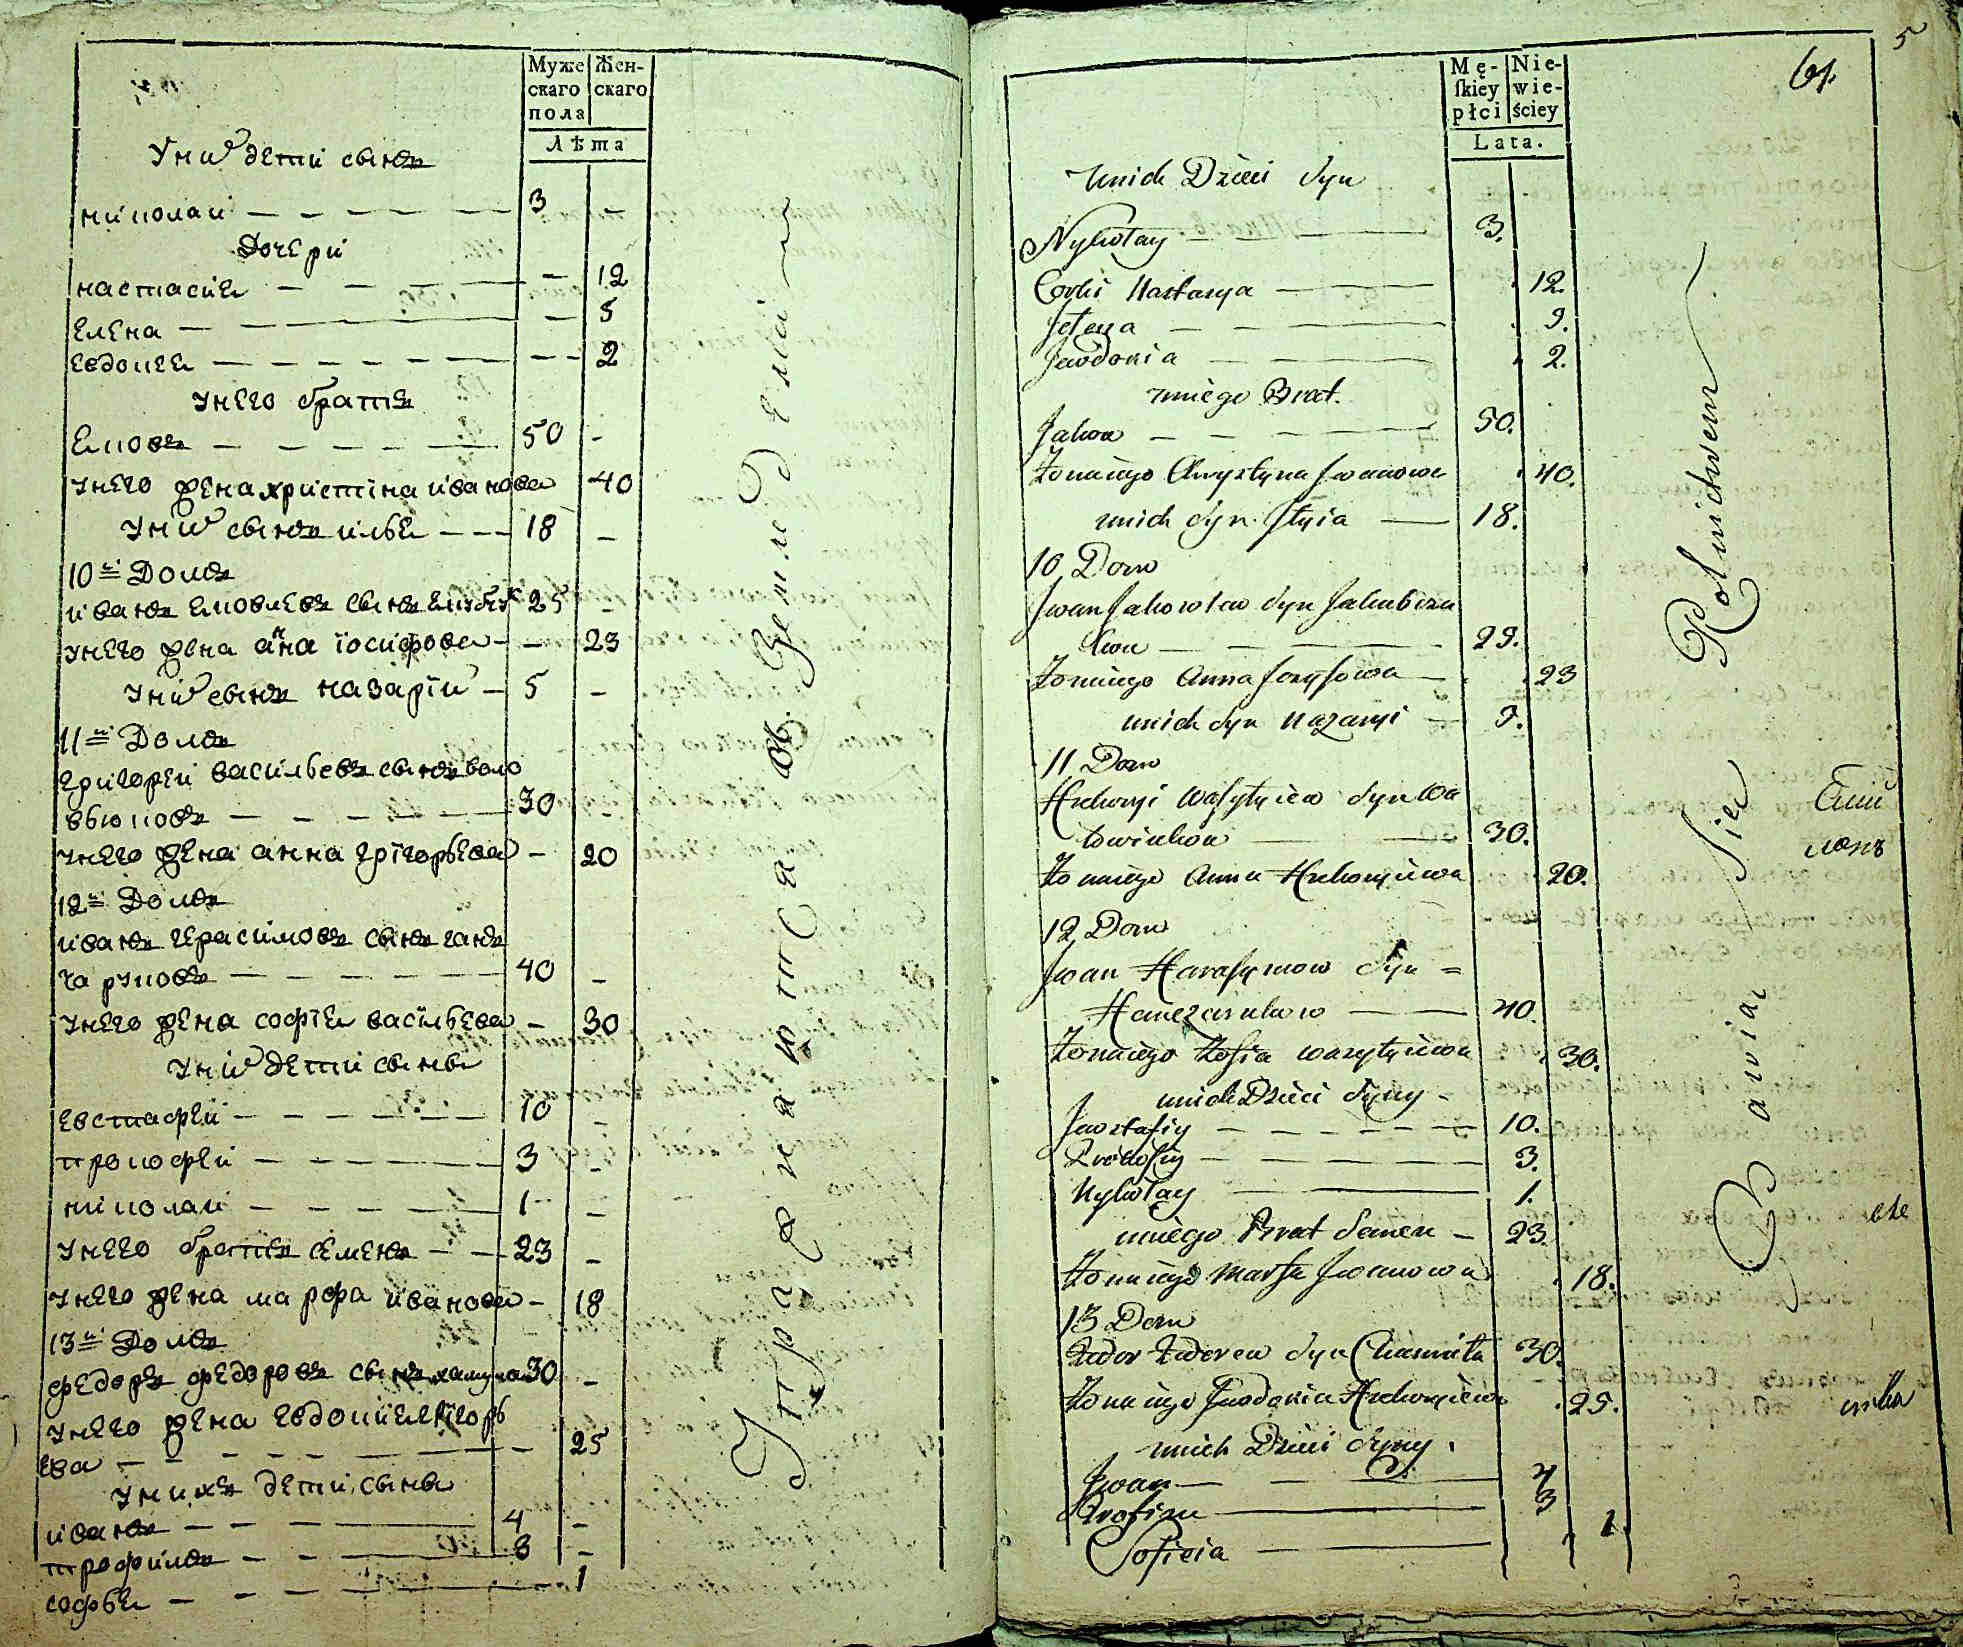 Муже Жен-
скаго скаго
пола
Лѣта
Уних дети сынъ
николаи 3
дочери
настасия 12
елена 5
евдокея 2
унего братъ
яковъ 50
унего жена христина иванова 40
уних сынъ илья 18
10й Домъ
иванъ яковлевъ сынъ 25
унего жена анна іосифова 23
уних сынъ назаріи 5
11й Домъ
григореи васильевъ сынъ воло
вьиковъ 30
унего жена анна григорьева 20
12й Домъ
иванъ герасимовъ сынъ ганъ
чаруковъ 40
унего жена софія васильева 30
уних дети сынвя
евстафеи 10
прокофеи 3
николаи 1
унего братъ семенъ 23
унего жена марфа иванова 18
13й Домъ
федоръ федоровъ сынъ 30
унего жена евдокия григорь
ева 25
унихъ дети сынвя
иванъ 4
трофимъ 3
софья 1
Упражняются въ Земледелии
5
61.
Mę- Nie-
skiey wie-
płci ściey
Lata.
unich Dzieci Syn
Nykołay 3.
Corki Nastasya 12.
Jełena 9.
Jewdokia 2.
uniego Brat.
Jakow 50.
Żona iego Chrystyna Jwanowa 40.
unich Syn Jlyia 18.
10 Dom
Jwan Jakowlew Syn Jakubczu
kow 29.
Żona iego Anna Jozyfowa 23
unich Syn Nazaryi 9.
11 Dom
Hrehoryi Wasylyiew Syn Wa
łowiukow 30.
Żona iego Anna Hrehoryiewa 20.
12 Dom
Jwan Harasymow Syn =
Hanczarukow 40.
Żona iego Zofia Wasylyiewa 30.
unich Dzieci Syny
Jewstafiy 10.
Prokofiy 3.
Nykołay 1.
uniego Brat Semen 23.
Żona iego Marfa Jwanowa 18.
13 Dom
Fedor Fedorow Syn 30.
Żona iego Jewdokia Hrehoryiewa 25.
unich Dzieci Syny.
Jwan 4
Trofim 3
Sofieia 1
Bawiąc Się Rolnictwem